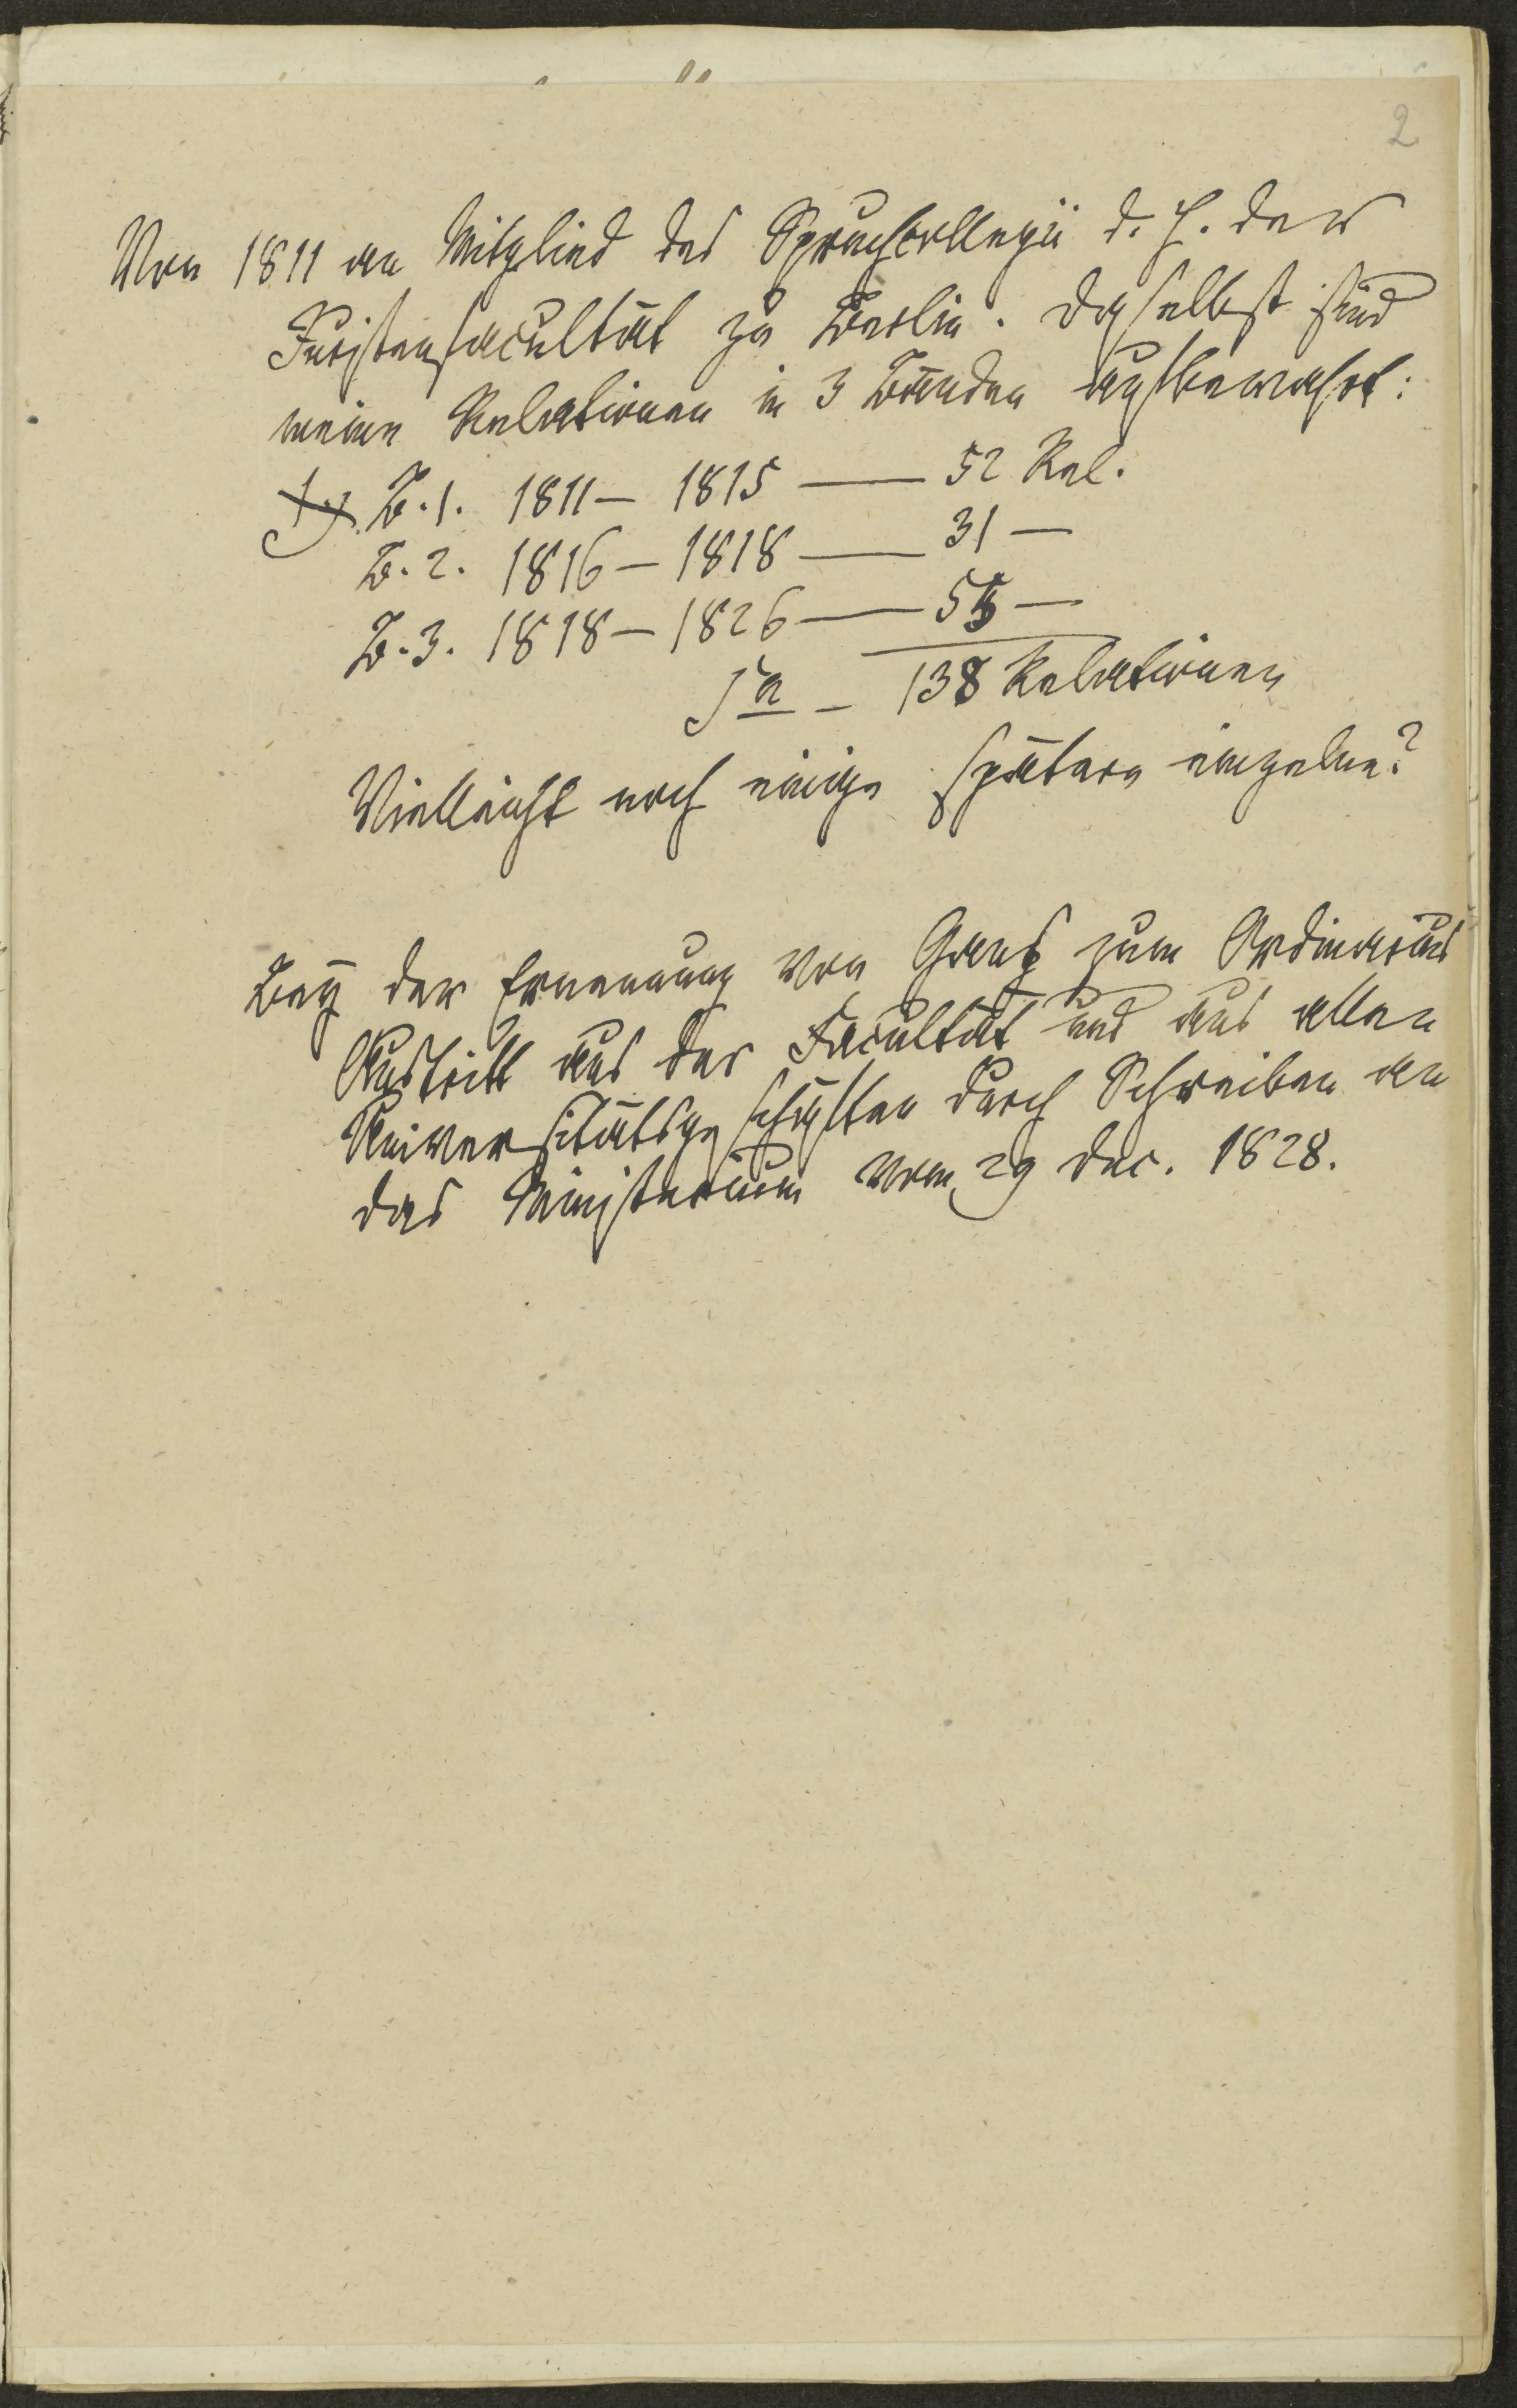 2
Von 1811 an Mitglied des Spruchcollegii d. h. der
Juristenfacultät zu Berlin. Daselbst sind
meine Relationen in 3 Bänden aufbewahrt:
B. 1. 1811 — 1815 — 52 Rel.
B. 2. 1816 — 1818 — 31 —
B. 3. 1818 — 1826 — 55 —
Sa — 138 Relationen
Vielleicht noch einige spätere einzelne?
Bey der Ernennung von Gans zum Ordinarius
Austritt aus der Facultät und aus allen
Universitätsgeschäften durch Schreiben an
das Ministerium vom 29 Dec. 1828.